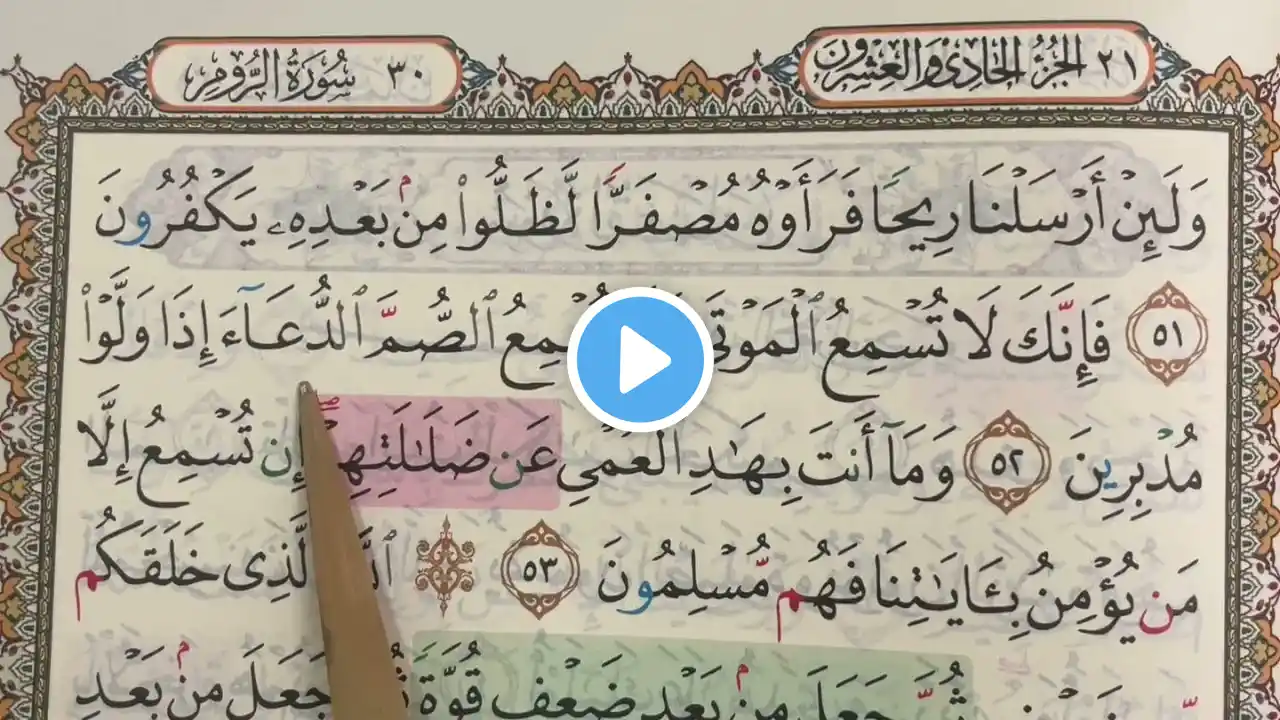 ٢١ الجزء الحادي والعشرون
٣٠ سورة الروم
وَلَئِنْ أَرْسَلْنَا رِيحًا فَرَأَوْهُ مُصْفَرًّا لَّظَلُّوا۟ مِنۢ بَعْدِهِۦ يَكْفُرُونَ
٥١ فَإِنَّكَ لَا تُسْمِعُ ٱلْمَوْتَى تُسْمِعُ ٱلصُّمَّ ٱلدُّعَآءَ إِذَا وَلَّوْا۟
مُدْبِرِينَ ٥٢ وَمَآ أَنتَ بِهَـٰدِ ٱلْعُمْىِ عَن ضَلَـٰلَتِهِمْ إِن تُسْمِعُ إِلَّا
مَن يُؤْمِنُ بِـَٔايَـٰتِنَا فَهُم مُّسْلِمُونَ ٥٣ ٱلَّذِى خَلَقَكُم
ثُمَّ جَعَلَ مِنۢ بَعْدِ ضَعْفٍ قُوَّةً جَعَلَ مِنۢ بَعْدِ